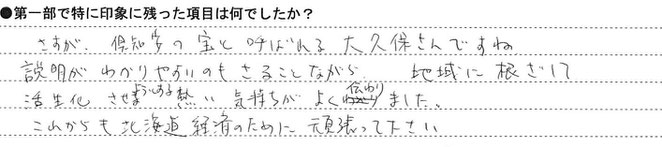 ●第一部で特に印象に残った項目は何でしたか？
さすが、倶知安の宝と呼ばれる大久保さんですね
説明がわかりやすいのもさることながら　地域に根ざして
活生化させようとする熱い気持ちがよく伝わりました。
これからも北海道経済のために頑張って下さい